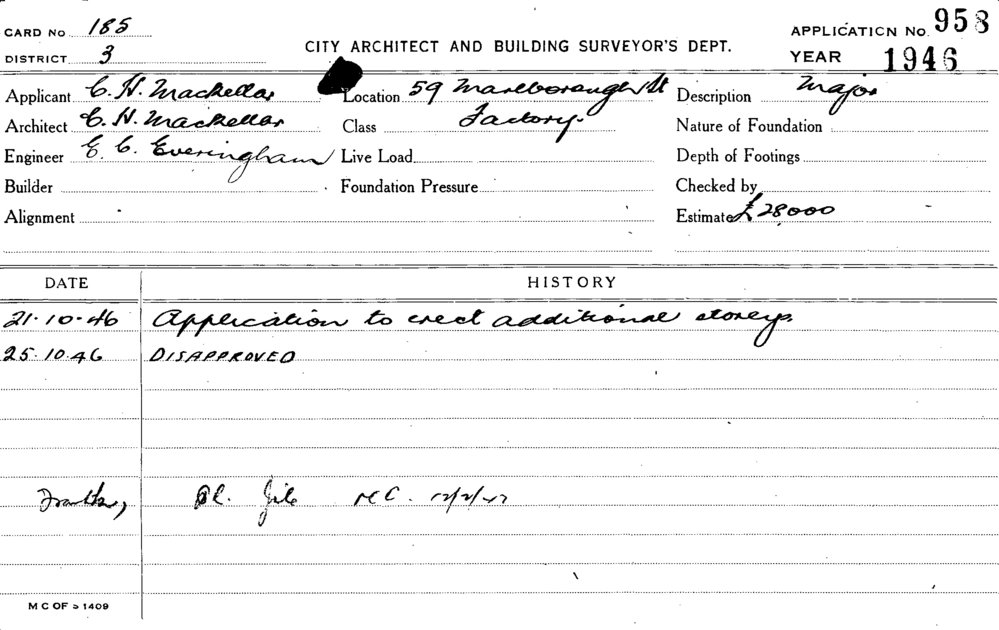 CARD No 185
DISTRICT 3
CITY ARCHITECT AND BUILDING SURVEYOR'S DEPT.
APPLICATION No. 958
YEAR 1946
Applicant C. H. Mackellar
Location 59 Marlborough St
Description Major
Architect C. H. Mackellar
Class Factory.
Nature of Foundation
Engineer E. C. Everingham
Live Load
Depth of Footings
Builder
Foundation Pressure
Checked by
Alignment
Estimate £28000
DATE HISTORY
21.10.46 Application to erect additional storeys.
25.10.46 DISAPPROVED
Pl. file
M C OF S 1409